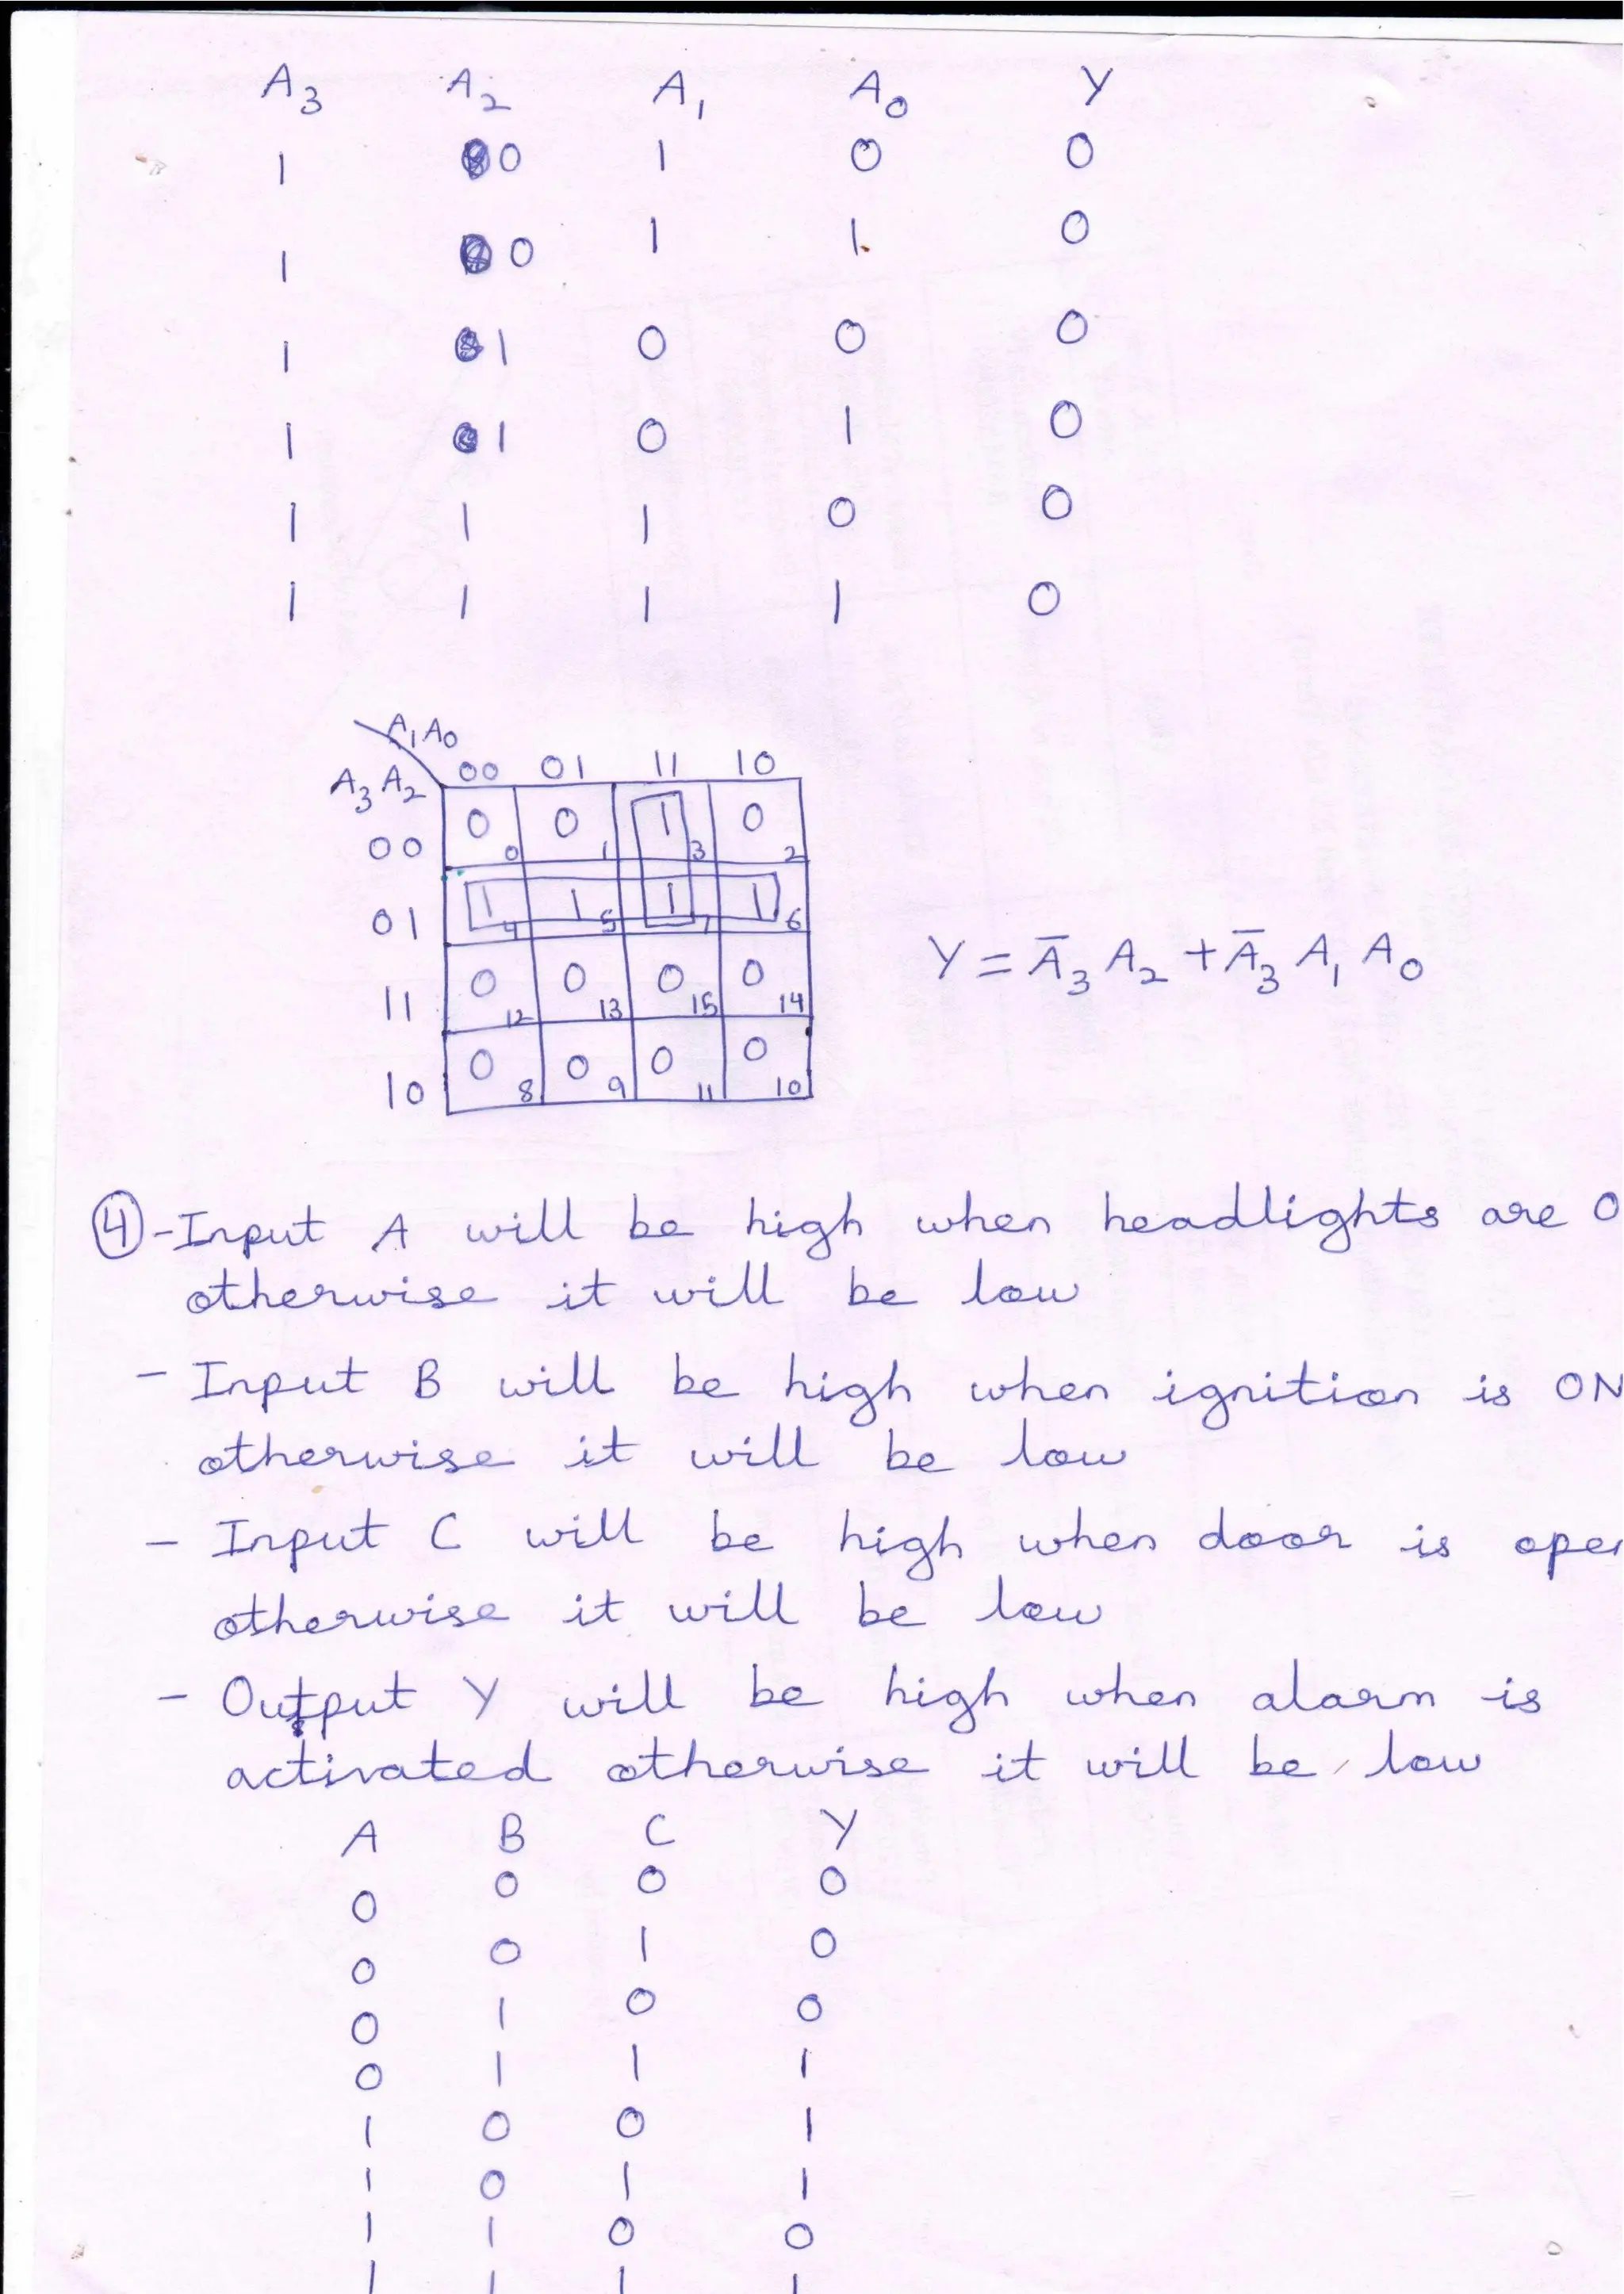 A3 A2 A1 A0 Y
1 0 1 0 0
1 0 1 1 0
1 1 0 0 0
1 1 0 1 0
1 1 1 0 0
1 1 1 1 0
A1A0
A3 A2 00 01 11 10
00 0 0 0 1 1 3 0 2
01 1 4 1 5 1 7 1 6
11 0 12 0 13 0 15 0 14
10 0 8 0 9 0 11 0 10
Y = A̅3 A2 + A̅3 A1 A0
④ - Input A will be high when headlights are O
otherwise it will be low
- Input B will be high when ignition is ON
otherwise it will be low
- Input C will be high when door is open
otherwise it will be low
- Output Y will be high when alarm is
activated otherwise it will be low
A B C Y
0 0 0 0
0 0 1 0
0 1 0 0
0 1 1 1
1 0 0 1
1 0 1 1
1 1 0 0
1 1 1 1